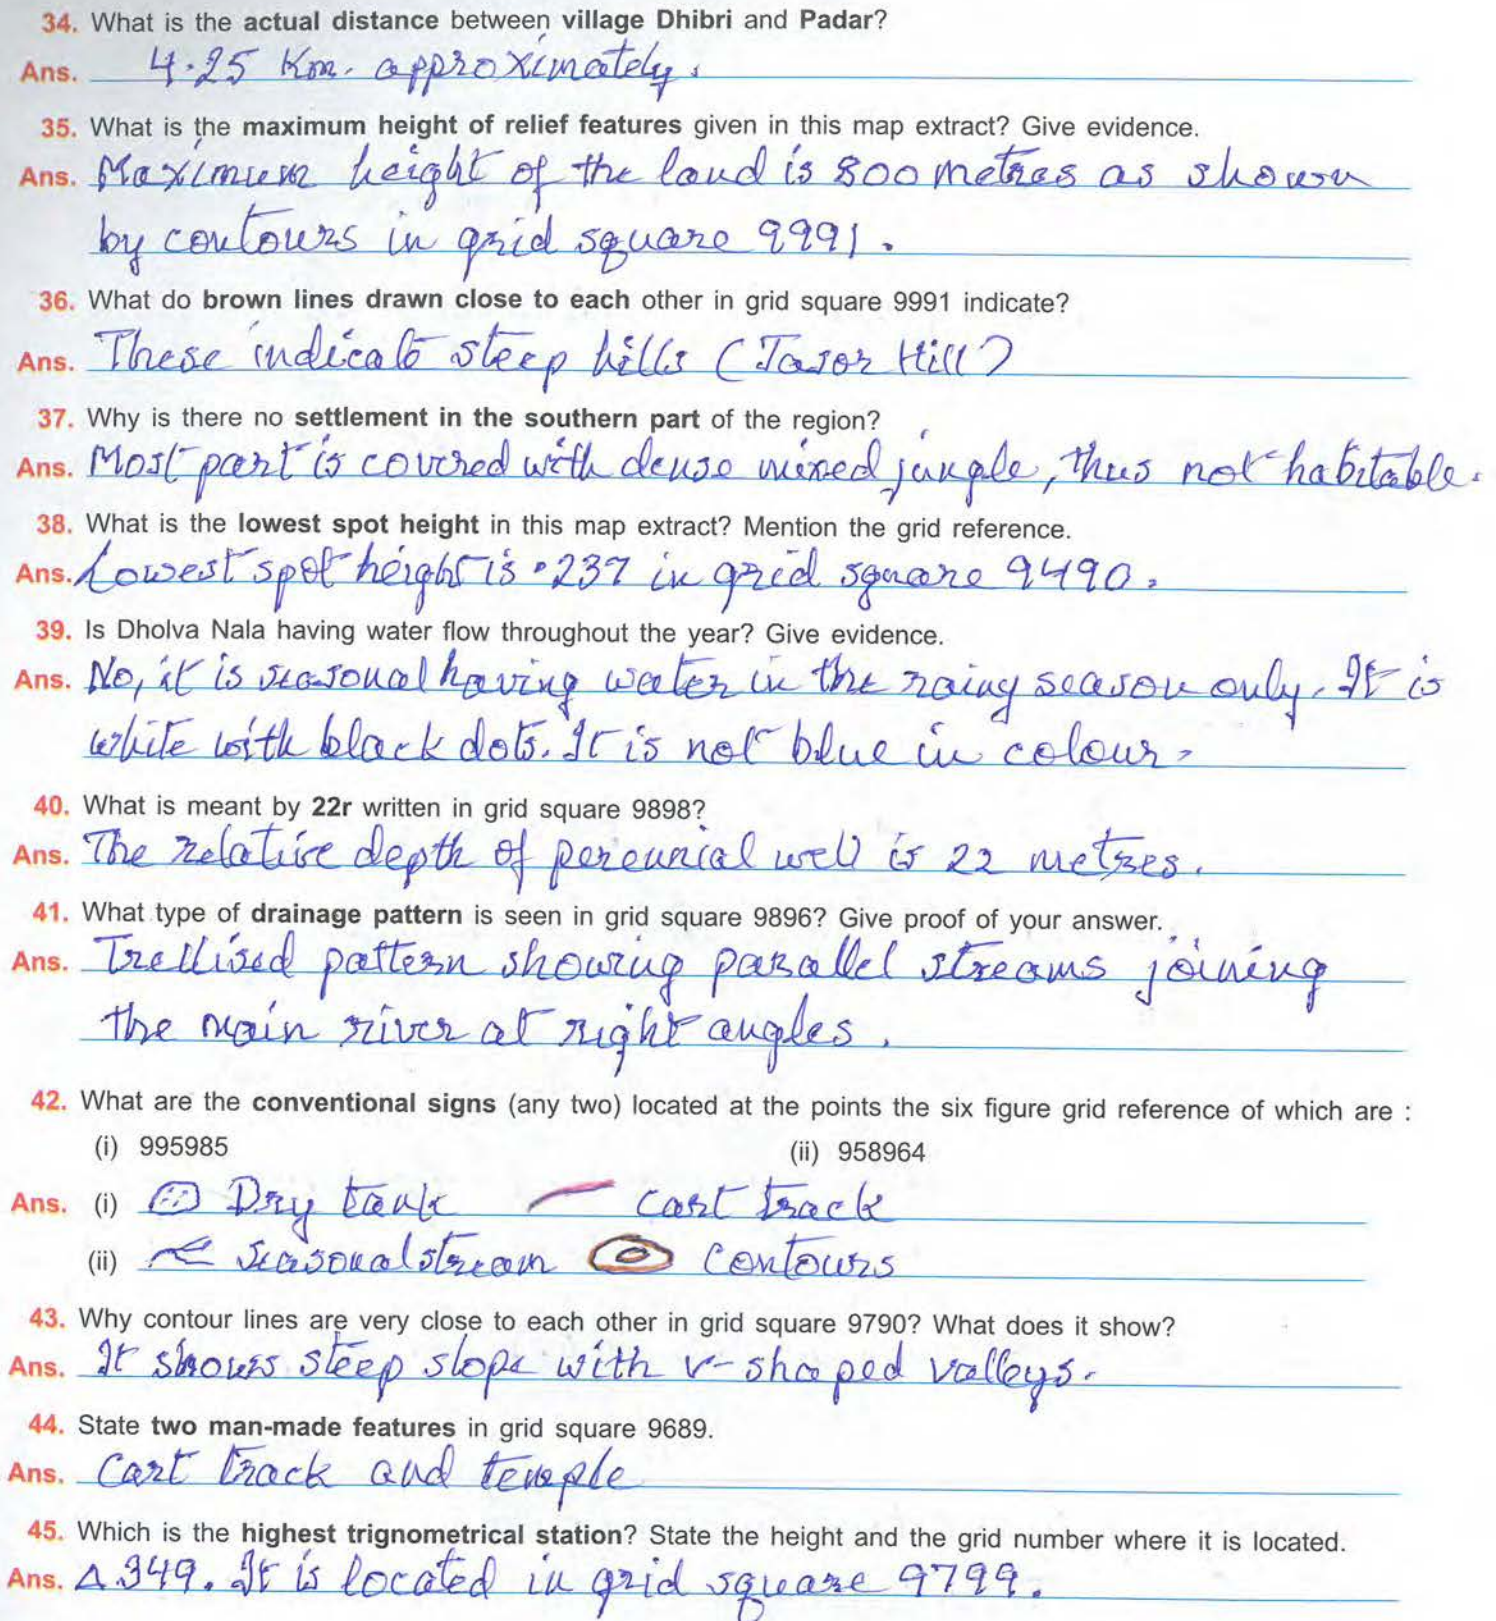 34. What is the actual distance between village Dhibri and Padar?
Ans. 4.25 Km. approximately.
35. What is the maximum height of relief features given in this map extract? Give evidence.
Ans. Maximum height of the land is 800 metres as shown
by contours in grid square 9991.
36. What do brown lines drawn close to each other in grid square 9991 indicate?
Ans. These indicate steep hills (Jasor Hill)
37. Why is there no settlement in the southern part of the region?
Ans. Most part is covered with dense mixed jungle, thus not habitable.
38. What is the lowest spot height in this map extract? Mention the grid reference.
Ans. Lowest spot height is •237 in grid square 9490.
39. Is Dholva Nala having water flow throughout the year? Give evidence.
Ans. No, it is seasonal having water in the rainy season only. It is
white with black dots. It is not blue in colour.
40. What is meant by 22r written in grid square 9898?
Ans. The relative depth of perennial well is 22 metres.
41. What type of drainage pattern is seen in grid square 9896? Give proof of your answer.
Ans. Trellised pattern showing parallel streams joining
the main river at right angles.
42. What are the conventional signs (any two) located at the points the six figure grid reference of which are :
(i) 995985 (ii) 958964
Ans. (i) Dry tank cart track
(ii) Seasonal stream Contours
43. Why contour lines are very close to each other in grid square 9790? What does it show?
Ans. It shows steep slope with v-shaped valleys.
44. State two man-made features in grid square 9689.
Ans. Cart track and temple
45. Which is the highest trignometrical station? State the height and the grid number where it is located.
Ans. Δ349. It is located in grid square 9799.